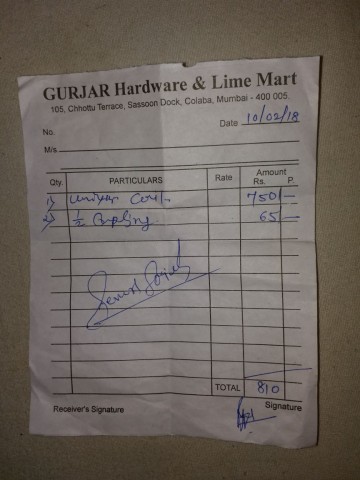 GURJAR Hardware & Lime Mart
105, Chhottu Terrace, Sassoon Dock, Colaba, Mumbai - 400 005.
No. Date 10/02/18
M/s
Qty. PARTICULARS Rate Amount
Rs. P.
1) 750/-
2) 1/2 65/-
TOTAL 810
Receiver's Signature Signature